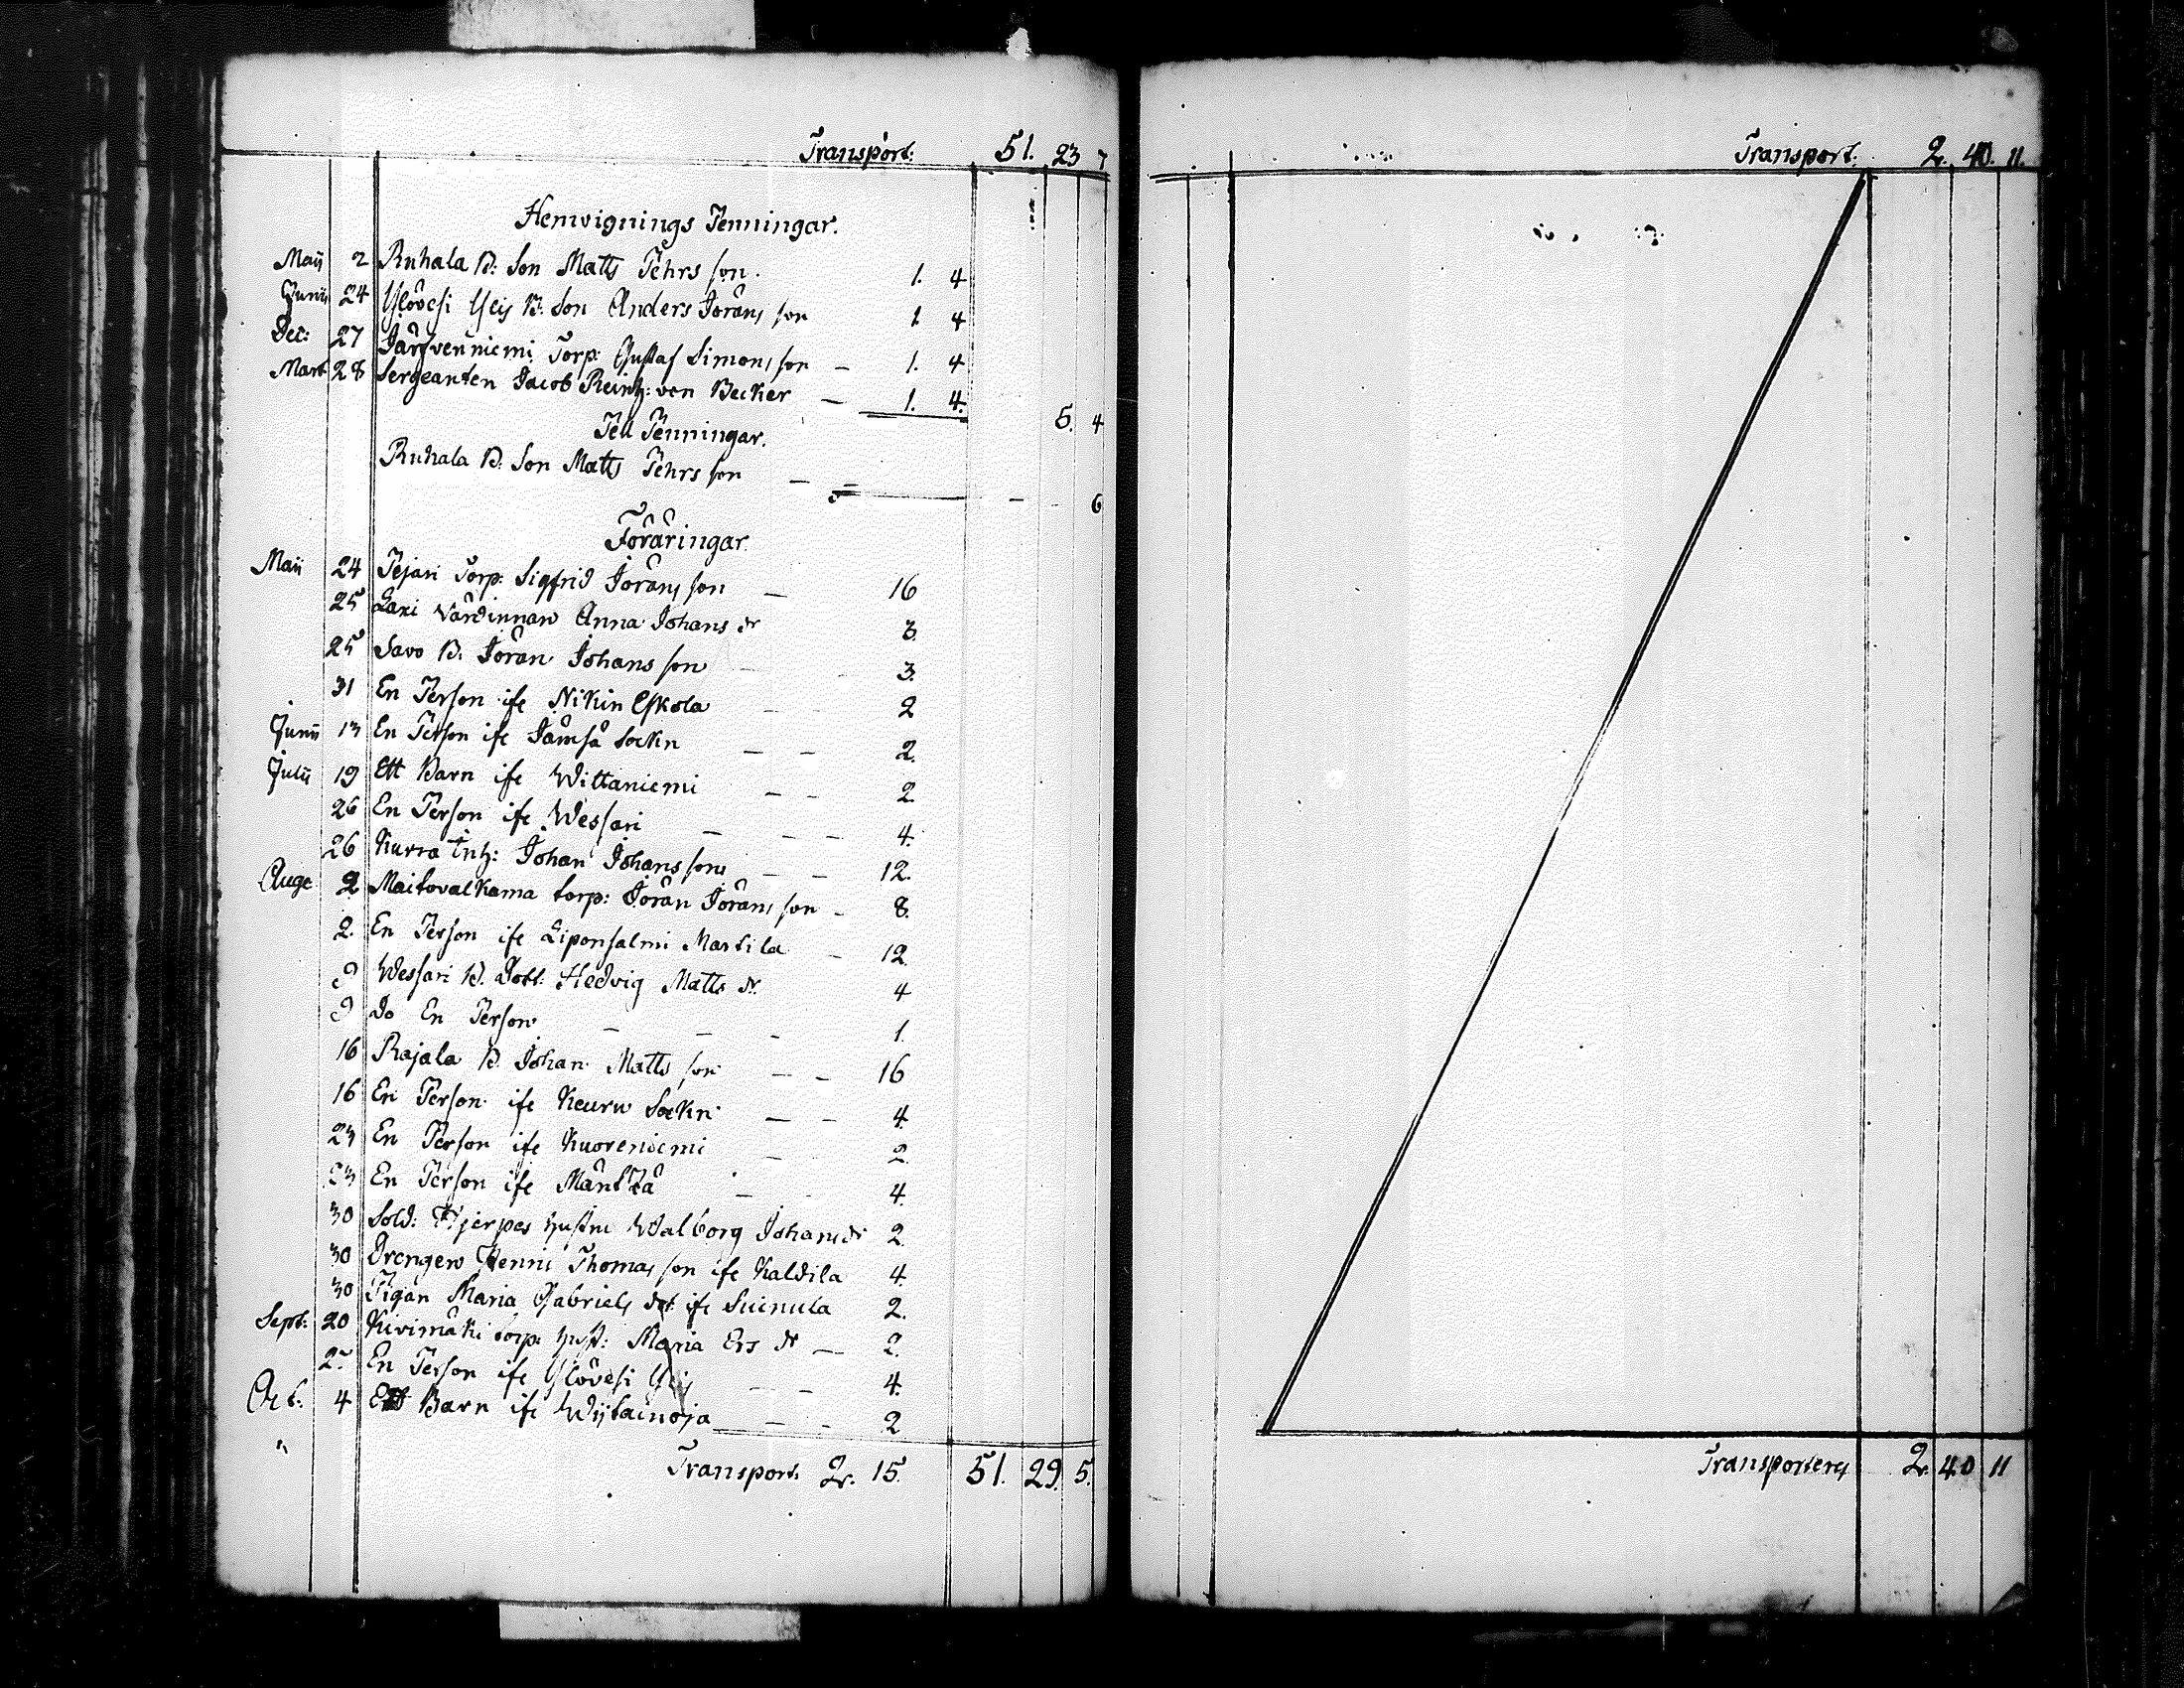 Transport: 51. 23 7
Hemvignings Penningar.
Maij 2 Ruhala B: Son Matts Pehrs son. 1. 4
Junii 24 Ylövesi Yeij B: Son Anders Jörans son 1. 4
Dec: 27 Järfvenniemi Torp: Gustaf Simons son — 1. 4
Mart 28 Sergeanten Jacob Reinh: von Becker — 1. 4. 5. 4
Pell Penningar.
Ruhala B: Son Matts Pehrs son — — — 6
Föräringar
Maii 24 Pejari Torp: Sigfrid Jörans son — 16
25 Laxi Värdinnan Anna Johans dr 3.
25 Savo B. Jöran Johans son 3.
31 En Person ifr Nikin Eskola 2
Junii 13 En Person ifr Jämsä Sockn — — 2.
Julii 19 Ett Barn ifr Wittaniemi — — 2.
26 En Person ifr Wessari — — — 4.
26 Kurra Inh: Johan Johans son — — 12.
Auge 2 Maitovalkama torp: Jöran Jörans son — 8.
2. En Person ifr Liponsalmi Martila — 12.
9 Wessari B. Dott: Hedvig Matts dr. 4
9 Do En Person — — — 1.
16 Rajala B. Johan Matts son — — 16
16 En Person ifr Keuru Sockn — — 4.
23 En Person ifr Kuoreniemi — 2.
23 En Person ifr Mänttä — 4.
30 Sold: Hjerpes hustru Walborg Johans dr 2.
30 Drengen Henric Thomas son ifr Kaldila 4.
30 Pigan Maria Gabriels dot: ifr Suinula 2.
Sept: 20 Kivimäki torp: hust: Maria Ers dr — 2.
En Person ifr Ylövesi Yeij — — 4.
Oct: 4 Ett Barn ifr Wijtainoja — — 2
Transport. 2. 15. 51. 29. 5.
Transport: 2. 40. 11.
Transporteres 2. 40 11